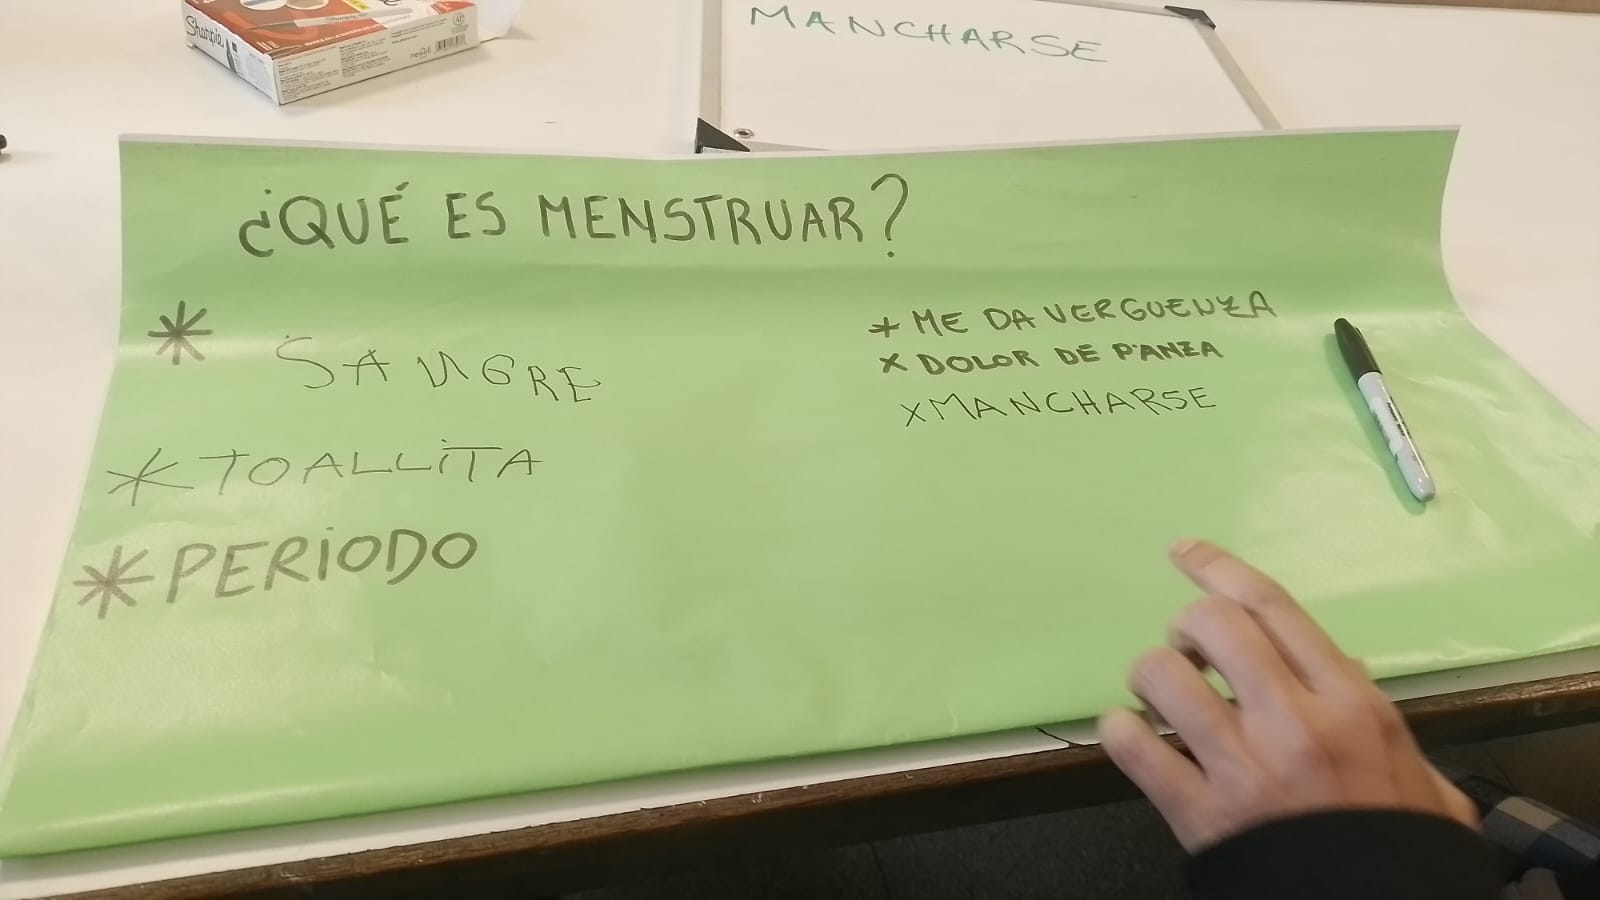 Sharpie
MANCHARSE
¿QUÉ ES MENSTRUAR?
* SANGRE
* TOALLITA
* PERIODO
* ME DA VERGUENZA
x DOLOR DE PANZA
x MANCHARSE